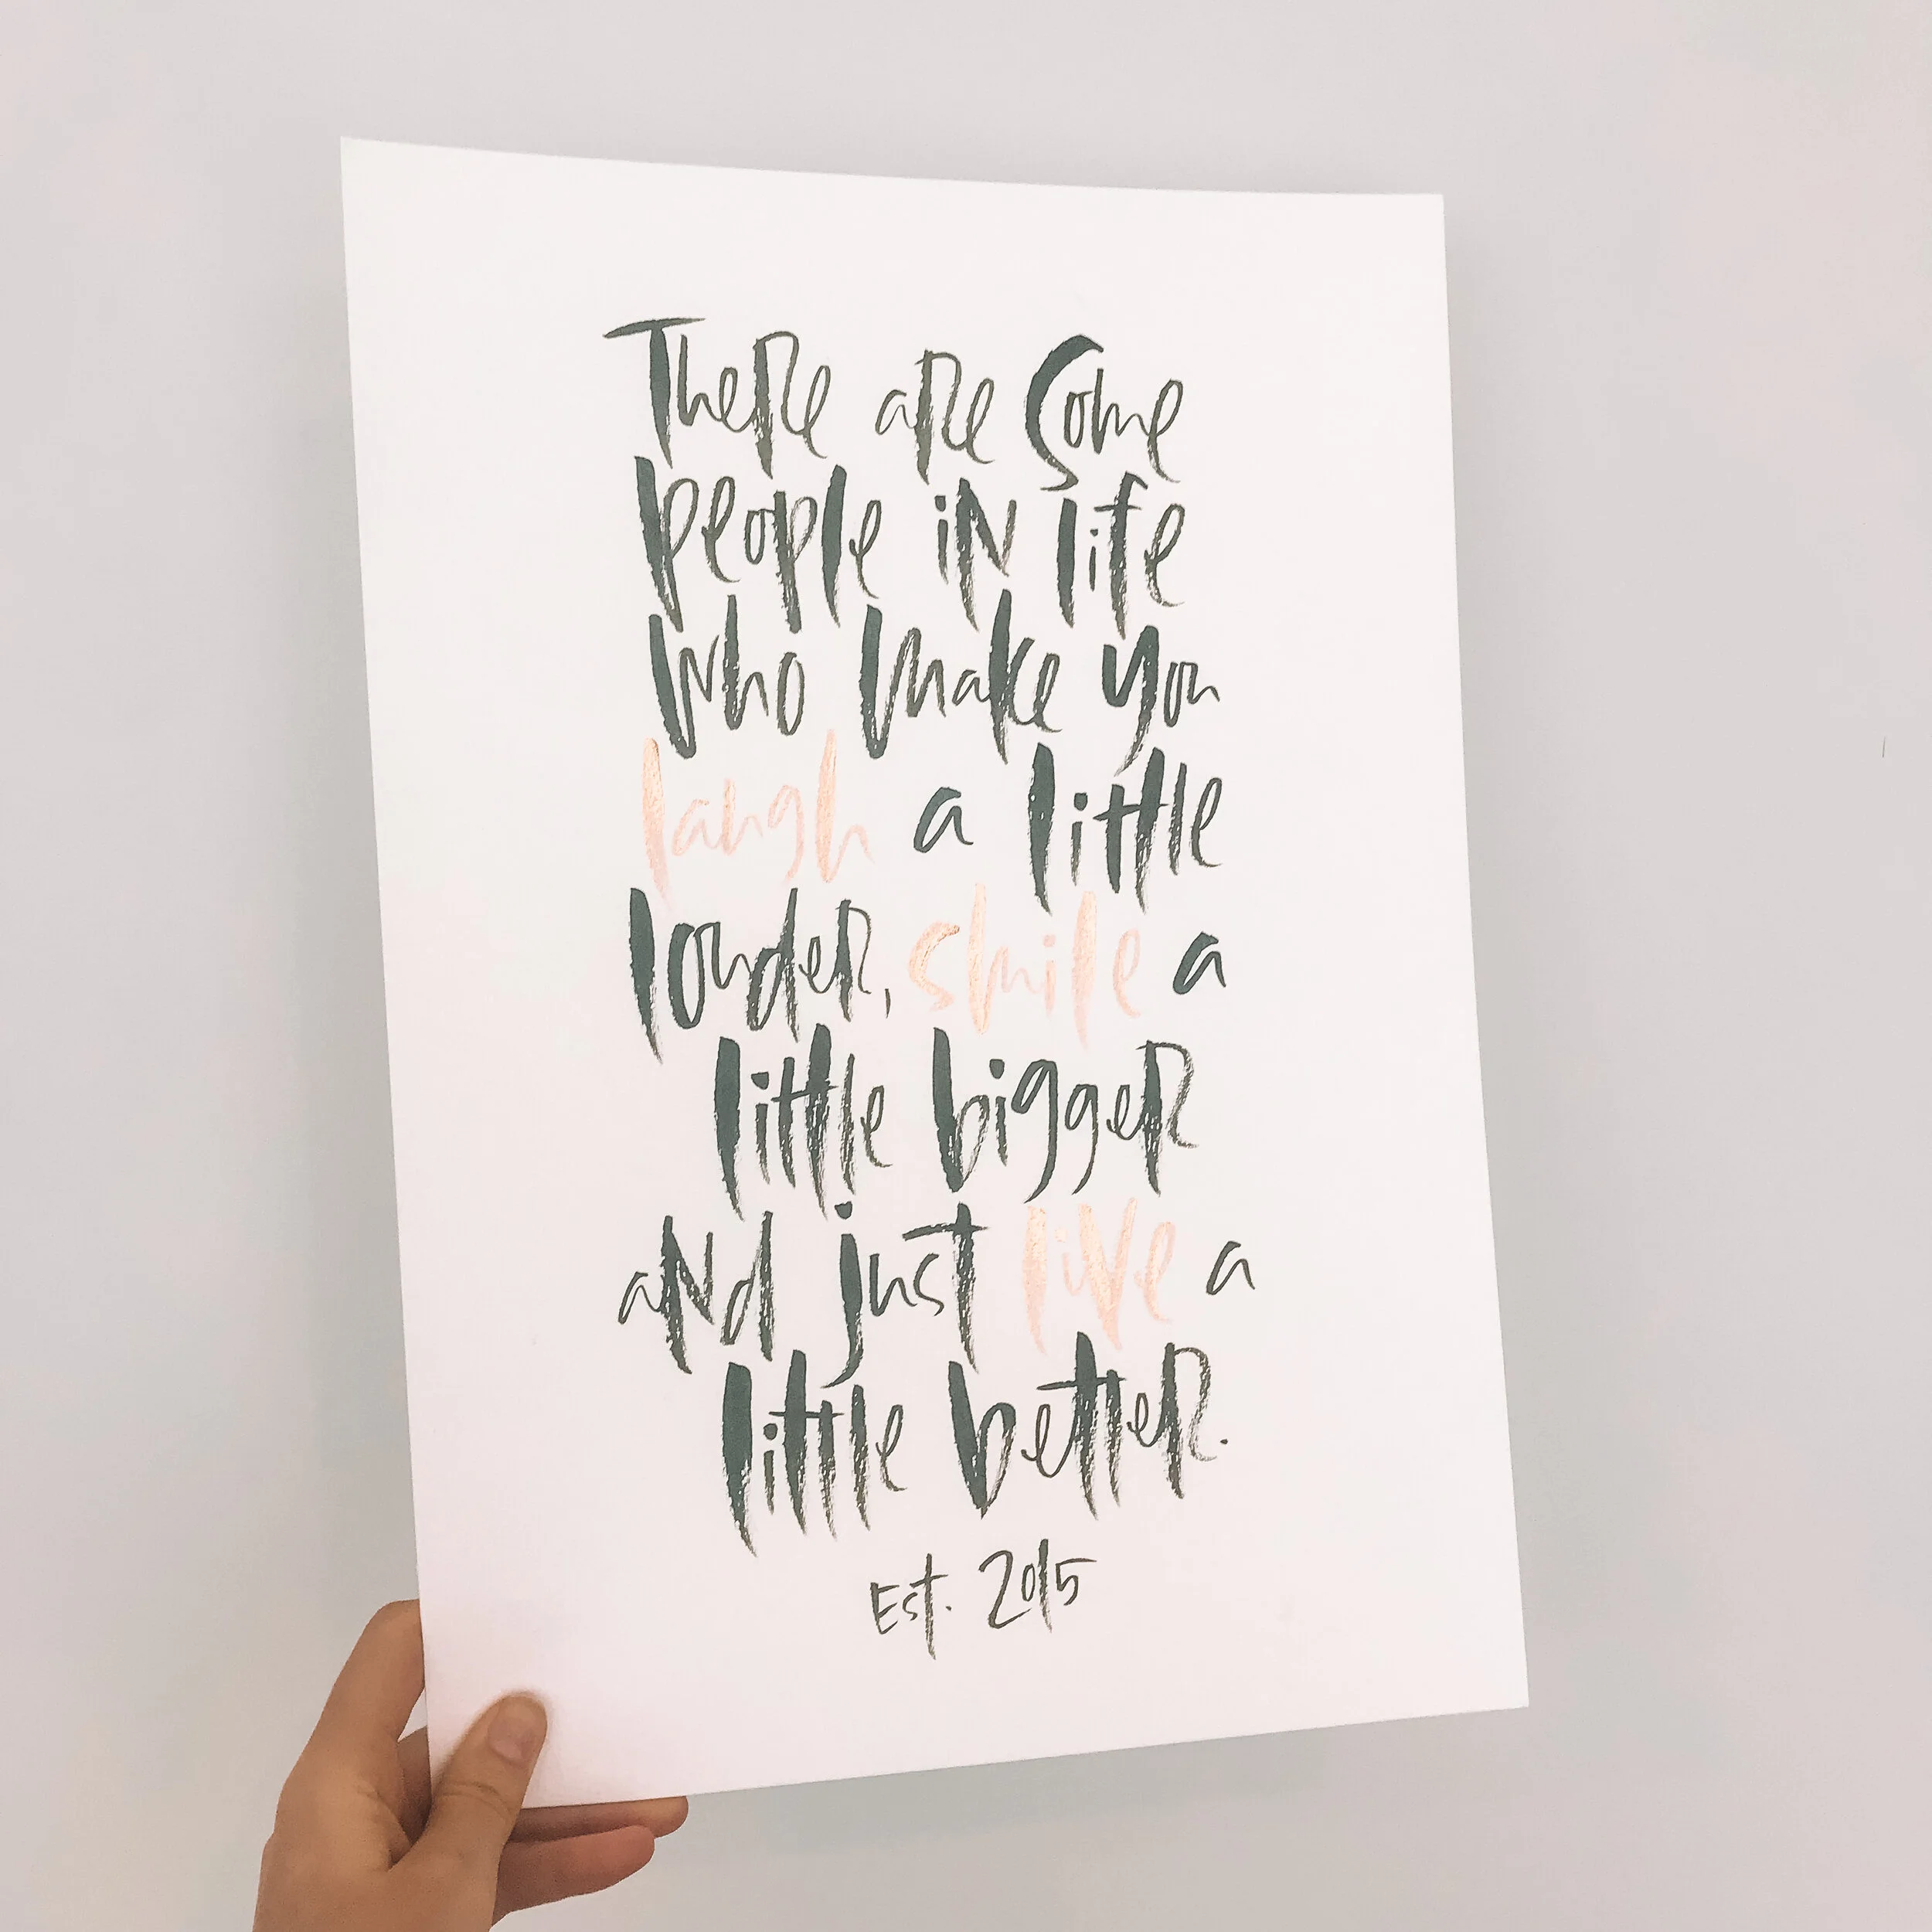 There are some
people in life
who make you
laugh a little
louder, smile a
little bigger
and just live a
little better.
Est. 2015